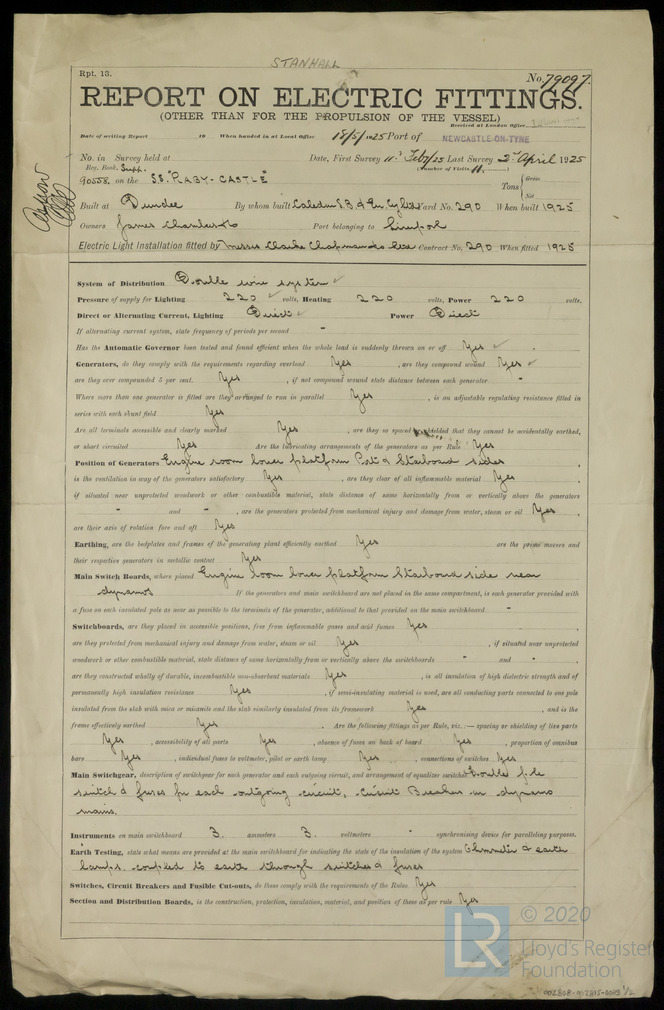 STANHALL
Rpt. 13.
No. 79097.
REPORT ON ELECTRIC FITTINGS.
(OTHER THAN FOR THE PROPULSION OF THE VESSEL)
Received at London Office
Date of writing Report 19 When handed in at Local Office 18/5/1925 Port of NEWCASTLE-ON-TYNE
No. in Survey held at Date, First Survey 11th Feby/25 Last Survey 2nd April 1925
Reg. Book. Supp. (Number of Visits 11.)
90558 on the S.S. RABY-CASTLE Tons { Gross
Net
Built at Dundee By whom built Caledon S.B & En. Cy Ltd Yard No. 290 When built 1925
Owners James Chambers & Co Port belonging to Liverpool
Electric Light Installation fitted by Messrs Clarke Chapman & Co Ltd Contract No. 290 When fitted 1925
System of Distribution Double wire system
Pressure of supply for Lighting 220 volts, Heating 220 volts, Power 220 volts.
Direct or Alternating Current, Lighting Direct Power Direct
If alternating current system, state frequency of periods per second -
Has the Automatic Governor been tested and found efficient when the whole load is suddenly thrown on or off Yes
Generators, do they comply with the requirements regarding overload Yes, are they compound wound Yes
are they over compounded 5 per cent. Yes, if not compound wound state distance between each generator -
Where more than one generator is fitted are they arranged to run in parallel Yes, is an adjustable regulating resistance fitted in
series with each shunt field Yes
Are all terminals accessible and clearly marked Yes, are they so spaced or shielded that they cannot be accidentally earthed,
or short circuited Yes Are the lubricating arrangements of the generators as per Rule Yes
Position of Generators Engine room lower platform Port & Starboard sides,
is the ventilation in way of the generators satisfactory Yes, are they clear of all inflammable material Yes,
if situated near unprotected woodwork or other combustible material, state distance of same horizontally from or vertically above the generators
- and -, are the generators protected from mechanical injury and damage from water, steam or oil Yes,
are their axis of rotation fore and aft Yes
Earthing, are the bedplates and frames of the generating plant efficiently earthed Yes are the prime movers and
their respective generators in metallic contact Yes
Main Switch Boards, where placed Engine room lower platform Starboard side near
dynamos If the generators and main switchboard are not placed in the same compartment, is each generator provided with
a fuse on each insulated pole as near as possible to the terminals of the generator, additional to that provided on the main switchboard -
Switchboards, are they placed in accessible positions, free from inflammable gases and acid fumes Yes,
are they protected from mechanical injury and damage from water, steam or oil Yes, if situated near unprotected
woodwork or other combustible material, state distance of same horizontally from or vertically above the switchboards - and -,
are they constructed wholly of durable, incombustible non-absorbent materials Yes, is all insulation of high dielectric strength and of
permanently high insulation resistance Yes, if semi-insulating material is used, are all conducting parts connected to one pole
insulated from the slab with mica or micanite and the slab similarly insulated from its framework Yes, and is the
frame effectively earthed Yes. Are the following fittings as per Rule, viz.:— spacing or shielding of live parts
Yes, accessibility of all parts Yes, absence of fuses on back of board Yes, proportion of omnibus
bars Yes, individual fuses to voltmeter, pilot or earth lamp Yes, connections of switches Yes
Main Switchgear, description of switchgear for each generator and each outgoing circuit, and arrangement of equalizer switches Double pole
switch & fuses for each outgoing circuit, Circuit Breakers on dynamo
mains.
Instruments on main switchboard 3. ammeters 3. voltmeters - synchronising device for paralleling purposes.
Earth Testing, state what means are provided at the main switchboard for indicating the state of the insulation of the system Ohmmeter & earth
lamps coupled to earth through switches & fuses
Switches, Circuit Breakers and Fusible Cut-outs, do these comply with the requirements of the Rules Yes
Section and Distribution Boards, is the construction, protection, insulation, material, and position of these as per rule Yes
LR © 2020
Lloyd's Register
Foundation
002808-002815-0093 1/2